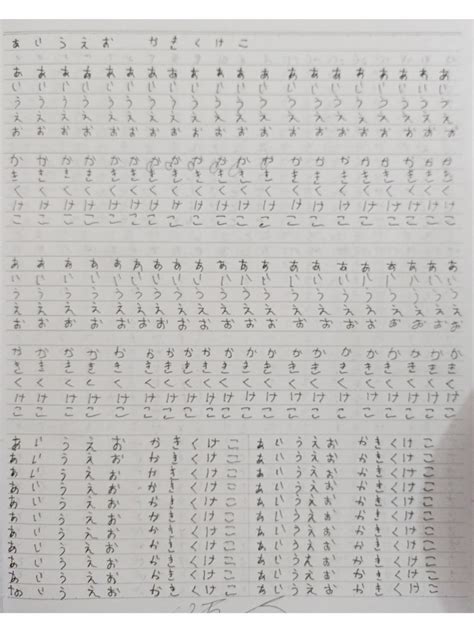 あいうえお かきくけこ
ああああああああああああああああああああ
いいいいいいいいいいいいいいいいいいいい
うううううううううううううううううううう
ええええええええええええええええええええ
おおおおおおおおおおおおおおおおおおおお
かかかかかかかかかかかかかかかかかかかか
きききききききききききききききききききき
くくくくくくくくくくくくくくくくくくくく
けけけけけけけけけけけけけけけけけけけけ
ここここここここここここここここここここ
ああああああああああああああああああああ
いいいいいいいいいいいいいいいいいいいい
うううううううううううううううううううう
ええええええええええええええええええええ
おおおおおおおおおおおおおおおおおおおお
かかかかかかかかかかかかかかかかかかかかか
ききききききききききききききききききききき
くくくくくくくくくくくくくくくくくくくくく
けけけけけけけけけけけけけけけけけけけけけ
こここここここここここここここここここここ
あいうえお かきくけこ あいうえお かきくけこ
あいうえお かきくけこ あいうえお かきくけこ
あいうえお かきくけこ あいうえお かきくけこ
あいうえお かきくけこ あいうえお かきくけこ
あいうえお かきくけこ あいうえお かきくけこ
あいうえお かきくけこ あいうえお かきくけこ
あいうえお かきくけこ あいうえお かきくけこ
あいうえお かきくけこ あいうえお かきくけこ
あいうえお かきくけこ あいうえお かきくけこ
あいうえお かきくけこ あいうえお かきくけこ
あいうえお かきくけこ あいうえお かきくけこ